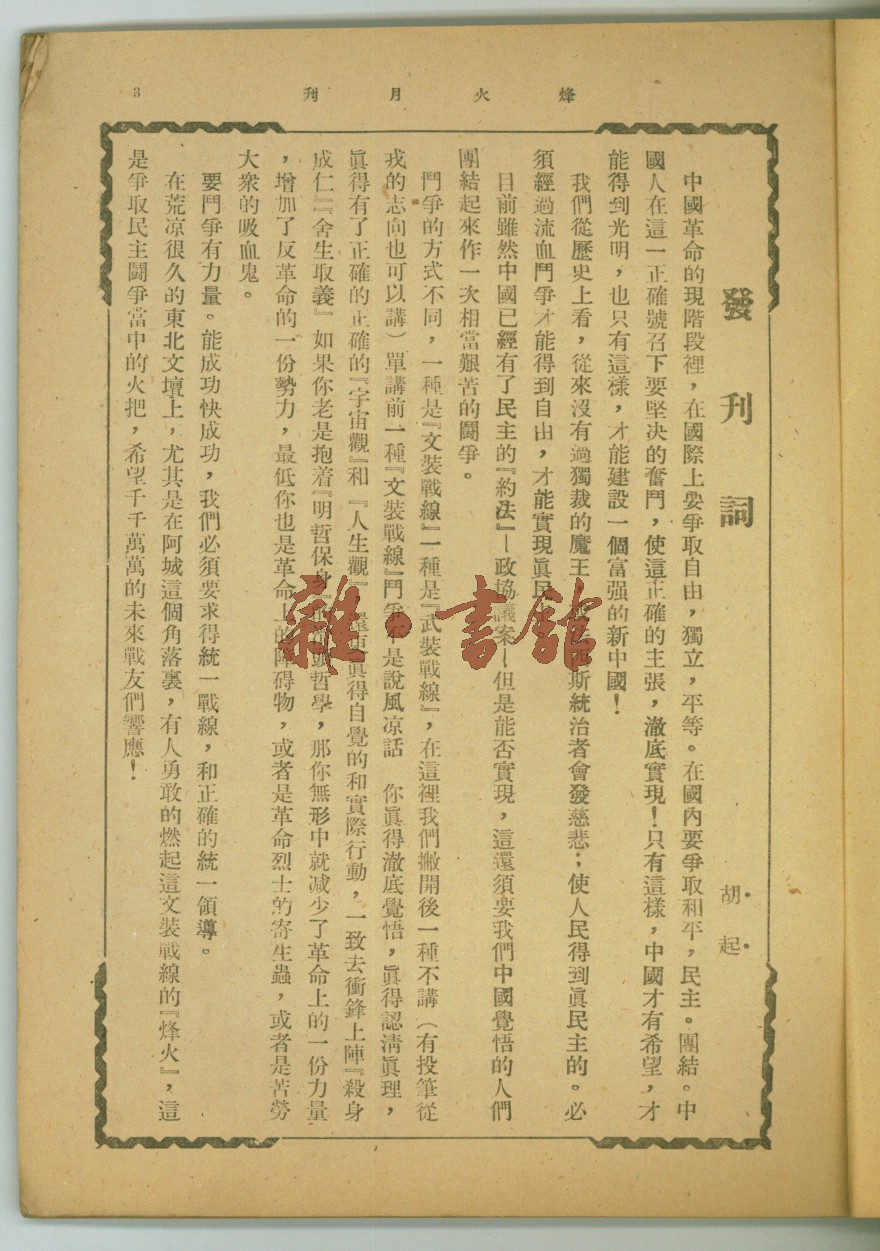 烽火月刊
3
發刊詞
胡起
中國革命的現階段裡，在國際上要爭取自由，獨立，平等。在國內要爭取和平，民主。團結。中
國人在這一正確號召下要堅决的奮鬥，使這正確的主張，澈底實現！只有這樣，中國才有希望，才
能得到光明，也只有這樣，才能建設一個富强的新中國！
我們從歷史上看，從來沒有過獨裁的魔王 斯統治者會發慈悲；使人民得到眞民主的。必
須經過流血鬥爭才能得到自由，才能實現眞民
目前雖然中國已經有了民主的『約法』—政協議案—但是能否實現，這還須要我們中國覺悟的人們
團結起來作一次相當艱苦的鬭爭。
鬥爭的方式不同，一種是『文裝戰線』一種是『武裝戰線』，在這裡我們撇開後一種不講（有投筆從
戎的志向也可以講）單講前一種『文裝戰線』鬥爭不是說風凉話 你眞得澈底覺悟，眞得認淸眞理，
眞得有了正確的正確的『宇宙觀』和『人生觀』，還更眞得自覺的和實際行動，一致去衝鋒上陣『殺身
成仁』『舍生取義』如果你老是抱着『明哲保身』 哲學，那你無形中就减少了革命上的一份力量
，增加了反革命的一份勢力，最低你也是革命上的障碍物，或者是革命烈士的寄生蟲，或者是苦勞
大衆的吸血鬼。
要鬥爭有力量。能成功快成功，我們必須要求得統一戰線，和正確的統一領導。
在荒凉很久的東北文壇上，尤其是在阿城這個角落裏，有人勇敢的燃起這文裝戰線的『烽火』，這
是爭取民主鬭爭當中的火把，希望千千萬萬的未來戰友們響應！
雜·書館